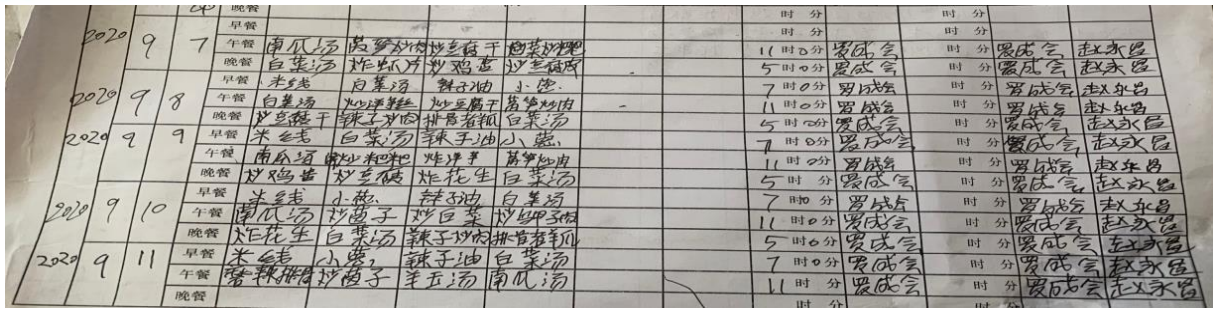 晚餐 时 分 时 分
2020 9 7 早餐 时 分 时 分
午餐 南瓜汤 菠萝炒肉 炒豆腐干 11时0分 罗成会 时 分 罗成会 赵永昌
晚餐 白菜汤 炸瓜片 炒鸡蛋 5时0分 罗成会 时 分 罗成会 赵永昌
2020 9 8 早餐 米线 白菜汤 辣子油 小葱 7时0分 罗成会 时 分 罗成会 赵永昌
午餐 白菜汤 炒豆腐干 莴笋炒肉 11时0分 罗成会 时 分 罗成会 赵永昌
晚餐 炒豆腐干 辣子炒肉 白菜汤 5时0分 罗成会 时 分 罗成会 赵永昌
2020 9 9 早餐 米线 白菜汤 辣子油 小葱 7时0分 罗成会 时 分 罗成会 赵永昌
午餐 南瓜汤 炸洋芋 莴笋炒肉 11时0分 罗成会 时 分 罗成会 赵永昌
晚餐 炒鸡蛋 炸花生 白菜汤 5时 分 罗成会 时 分 罗成会 赵永昌
2020 9 10 早餐 米线 小葱 辣子油 白菜汤 7时0分 罗成会 时 分 罗成会 赵永昌
午餐 南瓜汤 炒茴子 炒白菜 11时0分 罗成会 时 分 罗成会 赵永昌
晚餐 炸花生 白菜汤 辣子炒肉 5时0分 罗成会 时 分 罗成会 赵永昌
2020 9 11 早餐 米线 小葱 辣子油 白菜汤 7时0分 罗成会 时 分 罗成会 赵永昌
午餐 南瓜汤 11时 分 罗成会 时 分 罗成会 赵永昌
晚餐 时 分 时 分